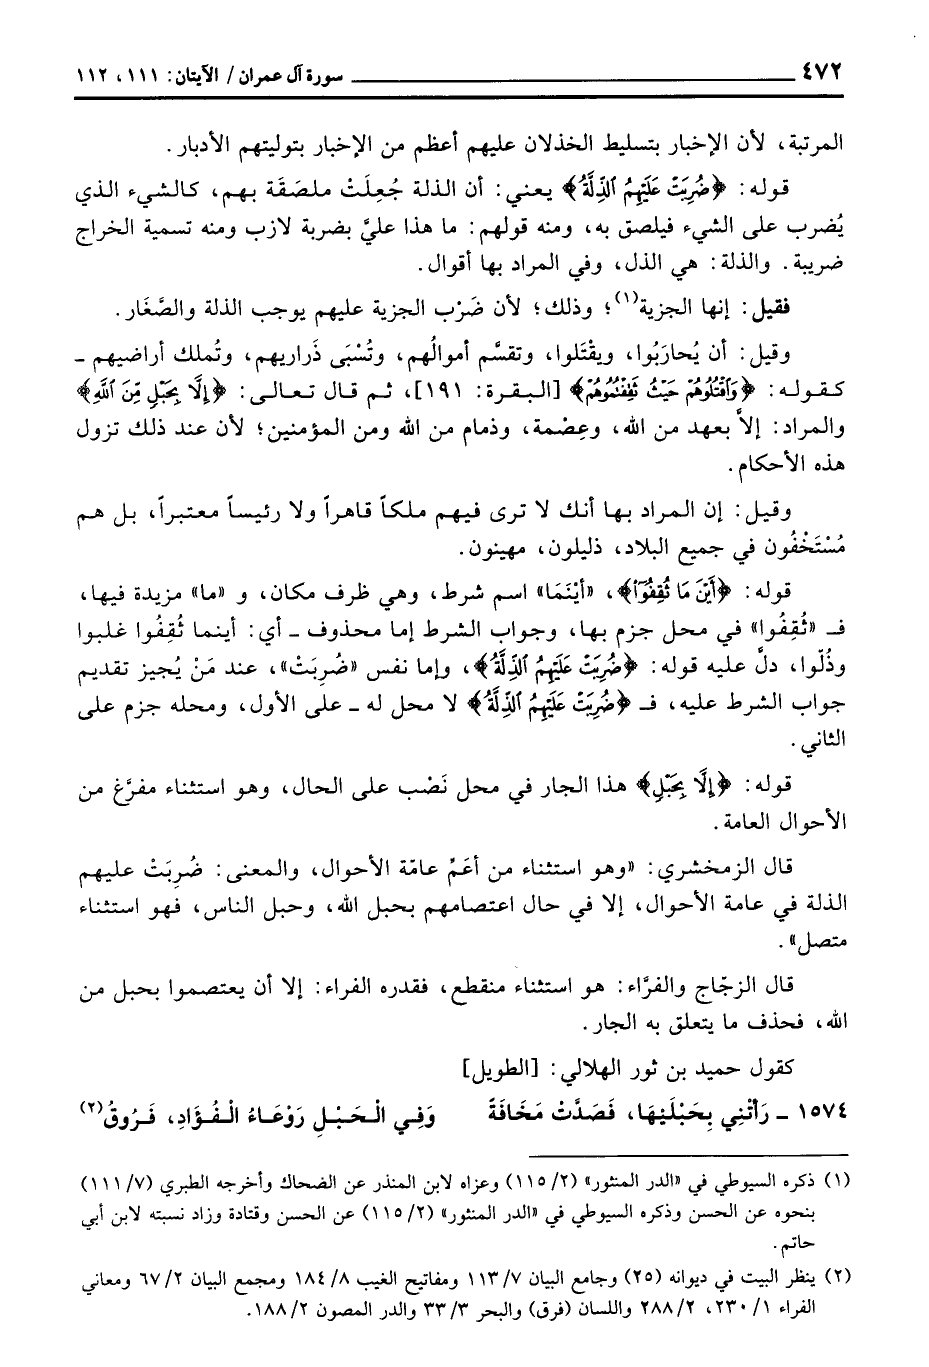 ٤٧٢ سورة آل عمران / الآيتان: ١١١، ١١٢
المرتبة، لأن الإخبار بتسليط الخذلان عليهم أعظم من الإخبار بتوليتهم الأدبار.
قوله: ﴿ضُرِبَتْ عَلَيْهِمُ ٱلذِّلَّةُ﴾ يعني: أن الذلة جُعِلَتْ ملصَقَة بهم، كالشيء الذي
يُضرب على الشيء فيلصق به، ومنه قولهم: ما هذا عليَّ بضربة لازب ومنه تسمية الخراج
ضريبة. والذلة: هي الذل، وفي المراد بها أقوال.
فقيل: إنها الجزية(١)؛ وذلك؛ لأن ضَرْب الجزية عليهم يوجب الذلة والصَّغَار.
وقيل: أن يُحارَبُوا، ويقْتَلوا، وتقسَّم أموالُهم، وتُسْبَى ذَراريهم، وتُملك أراضيهم -
كقوله: ﴿وَٱقْتُلُوهُمْ حَيْثُ ثَقِفْتُمُوهُمْ﴾ [البقرة: ١٩١]، ثم قال تعالى: ﴿إِلَّا بِحَبْلٍ مِّنَ ٱللَّهِ﴾
والمراد: إلاَّ بعهد من الله، وعِصْمة، وذمام من الله ومن المؤمنين؛ لأن عند ذلك تزول
هذه الأحكام.
وقيل: إن المراد بها أنك لا ترى فيهم ملكاً قاهراً ولا رئيساً معتبراً، بل هم
مُسْتَخْفُون في جميع البلاد، ذليلون، مهينون.
قوله: ﴿أَيْنَ مَا ثُقِفُوٓا۟﴾، «أيْنَمَا» اسم شرط، وهي ظرف مكان، و «ما» مزيدة فيها،
فـ «ثُقِفُوا» في محل جزم بها، وجواب الشرط إما محذوف - أي: أينما ثُقِفُوا غلبوا
وذُلّوا، دلَّ عليه قوله: ﴿ضُرِبَتْ عَلَيْهِمُ ٱلذِّلَّةُ﴾، وإما نفس «ضُرِبَتْ»، عند مَنْ يُجيز تقديم
جواب الشرط عليه، فـ ﴿ضُرِبَتْ عَلَيْهِمُ ٱلذِّلَّةُ﴾ لا محل له - على الأول، ومحله جزم على
الثاني.
قوله: ﴿إِلَّا بِحَبْلٍ﴾ هذا الجار في محل نَصْب على الحال، وهو استثناء مفرَّغ من
الأحوال العامة.
قال الزمخشري: «وهو استثناء من أعَمِّ عامّة الأحوال، والمعنى: ضُرِبَتْ عليهم
الذلة في عامة الأحوال، إلا في حال اعتصامهم بحبل الله، وحبل الناس، فهو استثناء
متصل».
قال الزجّاج والفرَّاء: هو استثناء منقطع، فقدره الفراء: إلا أن يعتصموا بحبل من
الله، فحذف ما يتعلق به الجار.
كقول حميد بن ثور الهلالي: [الطويل]
١٥٧٤ - رَأتْنِي بِحَبْلَيْهَا، فَصَدَّتْ مَخَافَةً وَفِي الْحَبْلِ رَوْعَاءُ الْفُؤَادِ، فَرُوقُ(٢)
(١) ذكره السيوطي في «الدر المنثور» (٢/ ١١٥) وعزاه لابن المنذر عن الضحاك وأخرجه الطبري (٧/ ١١١)
بنحوه عن الحسن وذكره السيوطي في «الدر المنثور» (٢/ ١١٥) عن الحسن وقتادة وزاد نسبته لابن أبي
حاتم.
(٢) ينظر البيت في ديوانه (٢٥) وجامع البيان ٧/ ١١٣ ومفاتيح الغيب ٨/ ١٨٤ ومجمع البيان ٢/ ٦٧ ومعاني
الفراء ١/ ٢٣٠، ٢/ ٢٨٨ واللسان (فرق) والبحر ٣/ ٣٣ والدر المصون ٢/ ١٨٨.